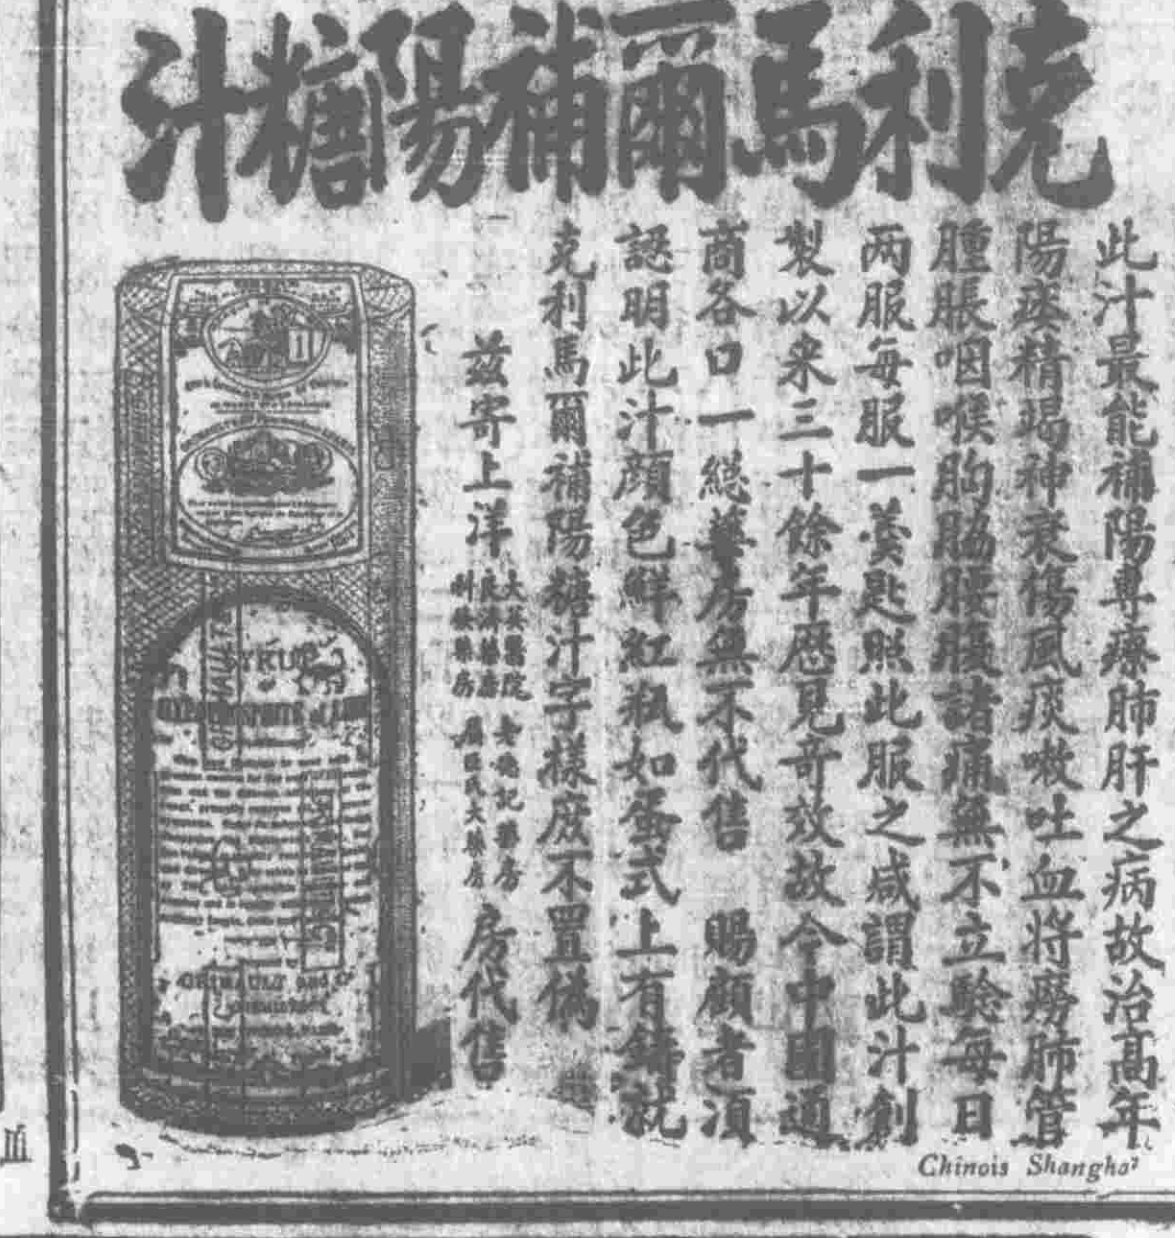 克利馬爾補陽糖汁
此汁最能補陽專療肺肝之病故治高年
陽痿精竭神衰傷風痰嗽吐血將癆肺管
腫脹咽喉胸脇腰腹諸痛無不立驗每日
两服每服一羹匙照此服之咸謂此汁創
製以来三十餘年歷見奇效故今中國通
商各口一總藥房無不代售 賜顧者須
認明此汁顏色鮮紅瓶如蛋式上有鑄就
克利馬爾補陽糖汁字樣庶不置僞
茲寄上洋
大英醫院
老德記藥房
屈臣氏大藥房
房代售
SYRUP
GRIMAULT
GRIMAULT AND Cº
Chinois Shangha